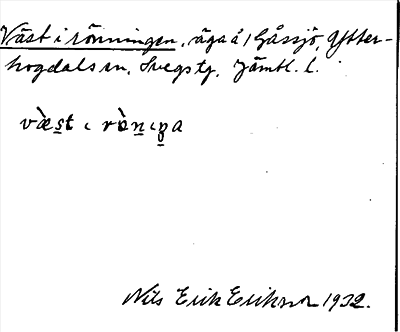 Väst i rönningen, äga å, Gåssjö, Ytter-
hogdals sn, Svegs tg. Jämtl. l.
væ̀s̱t ɩ rö̀ṉɩŋa
Nils Erik Erikson 1932.